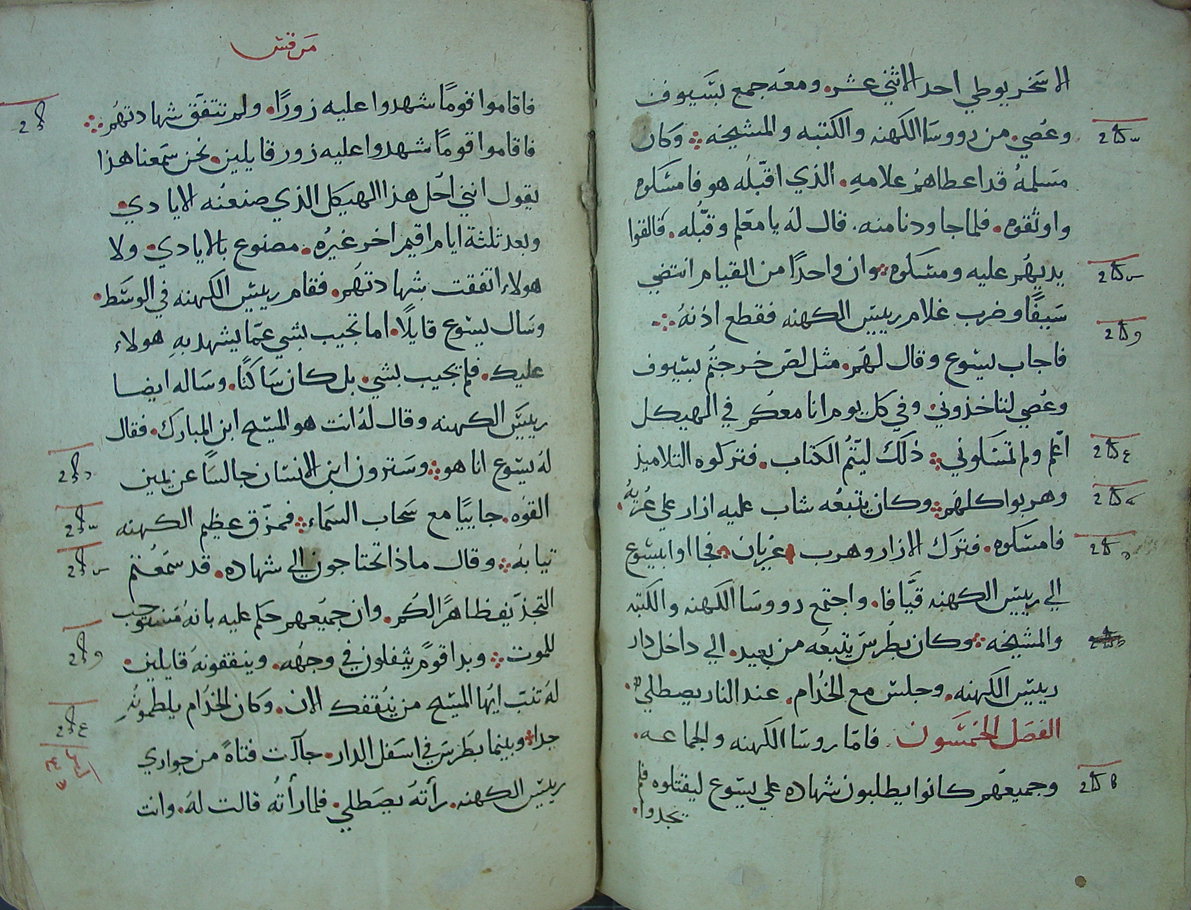 الاسخريوطي احد الاثني عشر. ومعه جمع بسيوف
وعُصي. من رووسا الكهنه والكتبه والمشيخه ܀ وكان
مسلمهُ قد اعطاهم علامه. الذي اقبّله هو فامسكوه
واوثقوه. فلما جا ودنا منه. قال لهُ يا معلم وقبّله. فالقوا
يديهم عليه ومسكوه ܀ وان واحدًا من القيام انتضي
سَيفًا وضرب غلام رييّس الكهنه فقطع اذنهُ ܀
فاجاب يسوع وقال لهم. مثل لصّ خرجتُم بسيوف
وعُصي لتاخذوني. وفي كل يوم انا معكُم في الهيكل
اعّلم ولم تمسكوني ܀ ذلك ليتُم الكتاب. فتركوه التلاميذ
وهربوا كلهم ܀ وكان يتبعُه شاب عليه ازار علي عُريهُ.
فامسكوه. فترك الازار وهرب عريان. فجااوا بيسُوع
الي رييّس الكهنه قيَّافا. واجتمع رووسَا الكهنه والكتبه
والمشيخه ܀ وكان بطُرسَ يتبعُه من بعيد. الي داخل دار
رييّس الكهنه. وجلس مع الخدُام. عند النار يصطلي.
الفصَل الخمسَون فامّا روسَا الكهنه والجماعه.
وجميعُهم كانوا يطلبون شهاده علي يسُوع ليقتلوه فلم
تجدوا.
مَرقسَ
فاقاموا قومًا شهدوا عليه زورًا. ولم تتفَق شهادتهُم ܀
فاقاموا قومًا شهدوا عليه زور قايلين. نحن سَمعنا هذا
يقول انني اُحل هذا الهيكل الذي صنعتُه الايادي.
وبعد ثلثة ايام اقيم اخر غيرُه. مصنوع بالايادي. ولا
هولاء اتفقت شهادتهُم. فقام رييّس الكهنه في الوسَط.
وسَال يسُوع قايلًا. اما تجيب بشي عمّا يشهد بهِ هولاء
عليك. فلم يجيب بشي. بل كان سَاكتًا. وسَاله ايضا
رييّسَ الكهنه وقال لهُ انت هو المسّيح ابن المبارك. فقال
لهُ يسُوع انا هو ܀ وسَترون ابن الانسَان جالسًا عن يمين
القوُه. جاييًا مع سَحاب السمَاء ܀ فمزّق عظيم الكهنه
ثيابهُ ܀ وقال ماذا تحتاجون الي شهاده. قد سمَعُتم
التجذيف ظاهرًا لكُم. وان جميعُهم حَكم عليه بانهُ مَستوجب
للموت ܀ وبدا قومٌ يتفلون في وجهُه. وينقفونهَ قايلين.
لهُ تنبّ ايهُا المسّيح من ينُقفك الان. وكان الخدُام يلطموُنه
جدا ܀ وبينما بطرسَ في اسَفل الدار. جاءَت فتاهً من جواري
رييّس الكهنه. رأتهُ يصَطلي. فلما رأتهُ قالت لهُ. وانت